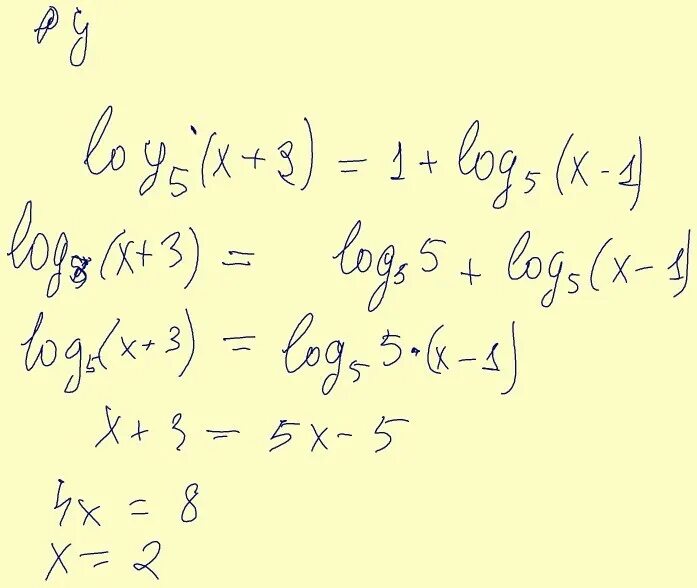 log₅(x+3) = 1 + log₅(x-1)
log₅(x+3) = log₅5 + log₅(x-1)
log₅(x+3) = log₅5·(x-1)
x+3 = 5x-5
4x = 8
x = 2